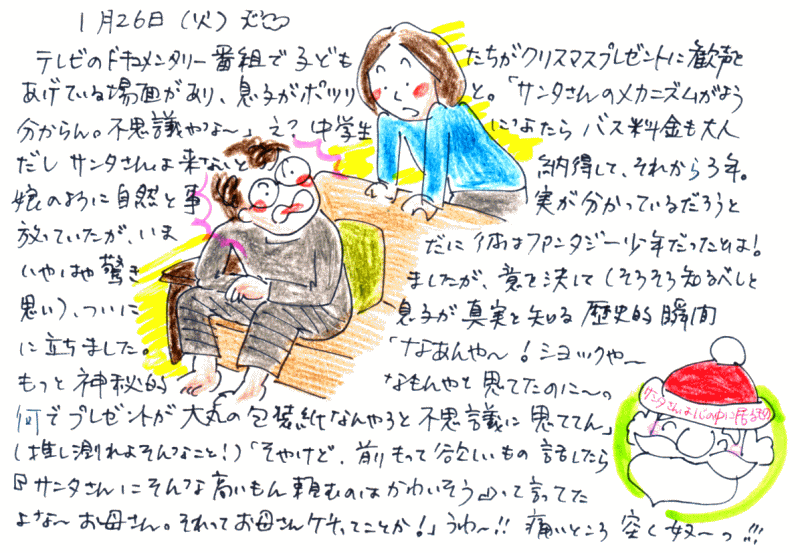 1月26日（火）
テレビのドキュメンタリー番組で子どもたちがクリスマスプレゼントに歓声を
あげている場面があり、息子がポツリと。「サンタさんのメカニズムがよう
分からん。不思議やな〜」え？中学生になったらバス料金も大人
だしサンタさんは来ないと納得して、それから3年。
娘のように自然と事実が分かっているだろうと
放っていたが、いまだに彼はファンタジー少年だったとは！
いやはや驚きましたが、意を決して（そろそろ知るべしと
思い）、ついに息子が真実を知る歴史的瞬間
に立ちました。「なあんや〜！ショックや〜
もっと神秘的なもんやと思てたのに〜。
何でプレゼントが大丸の包装紙なんやろと不思議に思ててん」
（推し測れよそんなこと！）「そやけど、前もって欲しいもの話したら
『サンタさんにそんな高いもん頼むのはかわいそう』って言ってた
よな〜お母さん。それってお母さんケチってことか！」うわ〜!!痛いところ突く奴〜っ!!!
サンタさんは心の中に居るもの